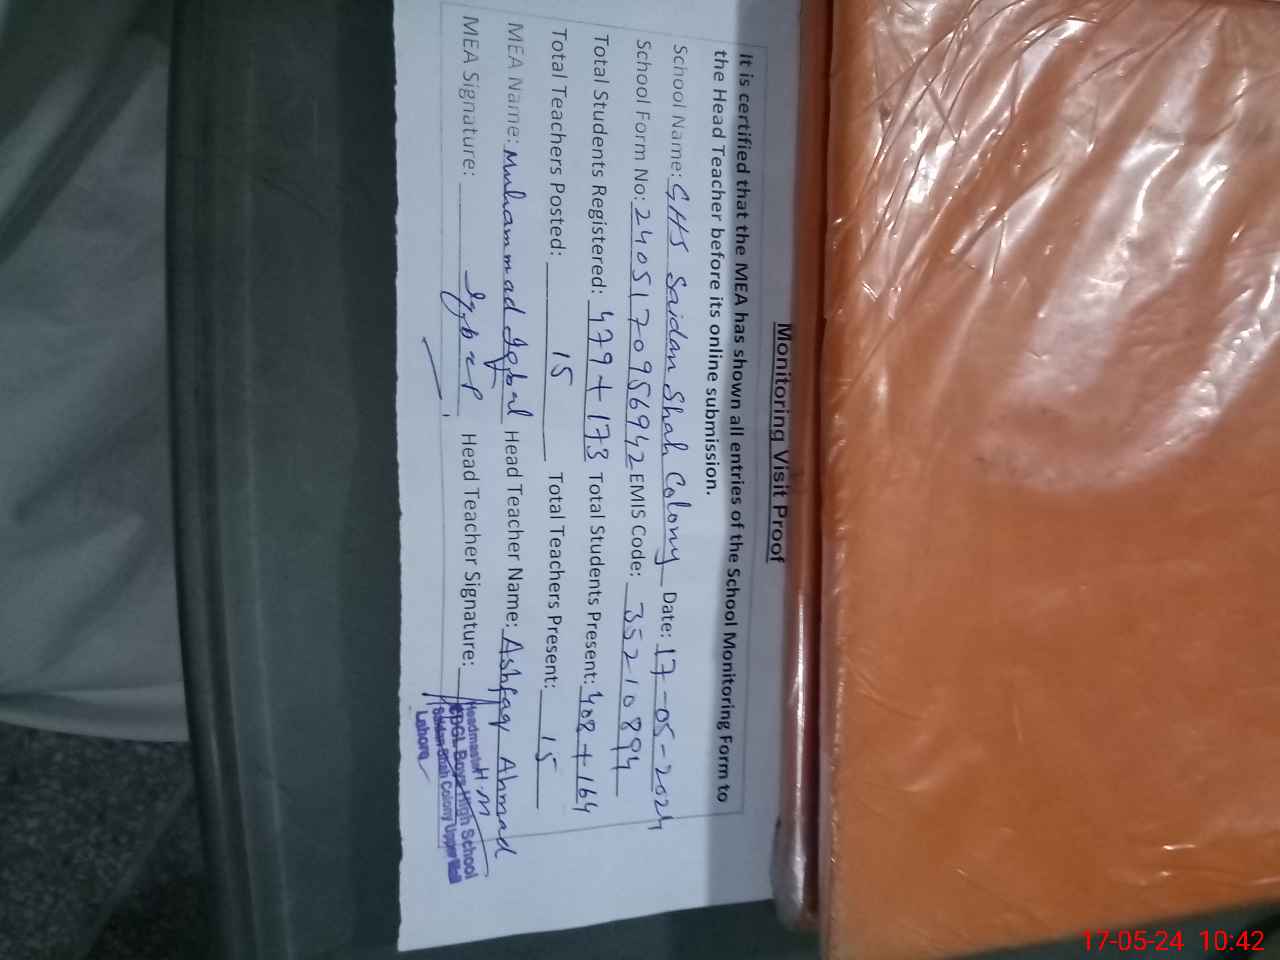 Monitoring Visit Proof
It is certified that the MEA has shown all entries of the School Monitoring Form to
the Head Teacher before its online submission.
School Name: GHS Saidan Shah Colony Date: 17-05-2024
School Form No: 2405170956942 EMIS Code: 35210894
Total Students Registered: 479+173 Total Students Present: 408+164
Total Teachers Posted: 15 Total Teachers Present: 15
MEA Name: Muhammad Iqbal Head Teacher Name: Ashfaqy Ahmad
MEA Signature: Iqbal Head Teacher Signature:
Headmaster H.M
CDGL Boys High School
Saidan Shah Colony Upper Mall
Lahore
17-05-24 10:42